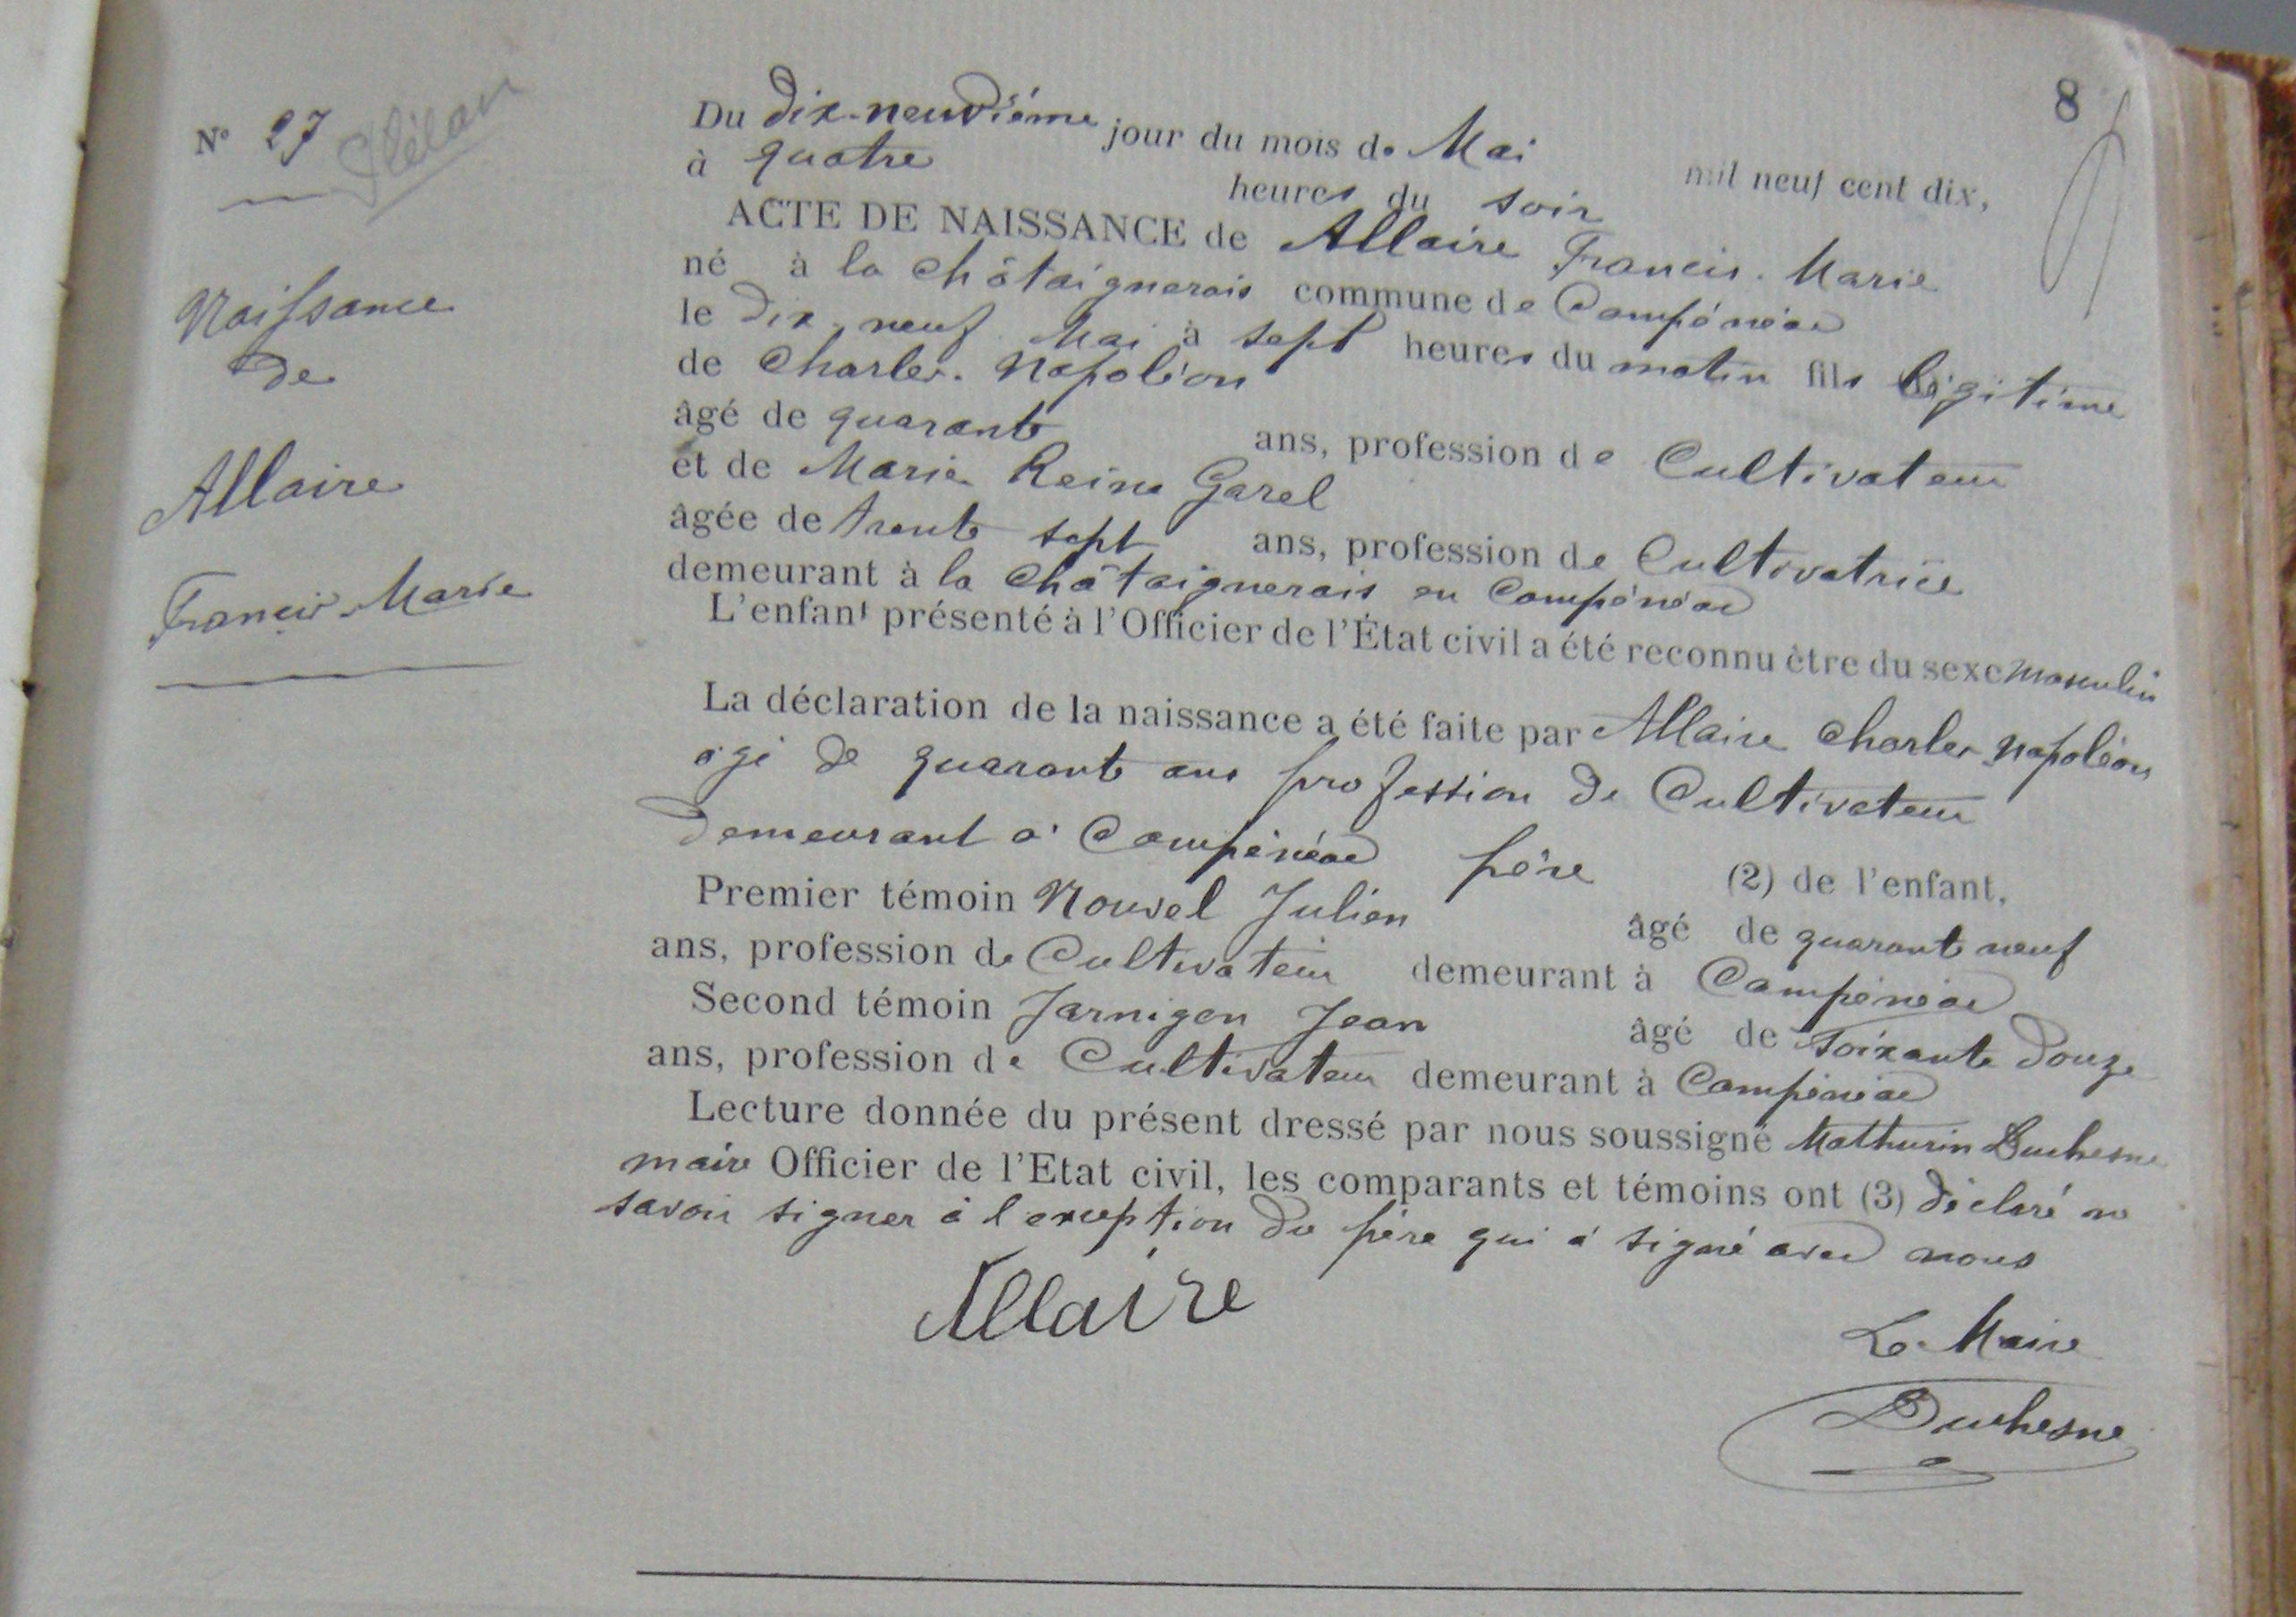 8
N° 27 Plélan
Naissance
de
Allaire
Francis-Marie
Du dix-neuvième jour du mois de Mai mil neuf cent dix,
à quatre heures du soir
ACTE DE NAISSANCE de Allaire Francis-Marie
né à la châtaignerais commune de Campénéac
le dix-neuf Mai à sept heures du matin fils légitime
de Charles-Napoléon
âgé de quarante ans, profession de Cultivateur
et de Marie Reine Garel
âgée de trente sept ans, profession de Cultivatrice
demeurant à la châtaignerais en Campénéac
L'enfant présenté à l'Officier de l'État civil a été reconnu être du sexe masculin
La déclaration de la naissance a été faite par Allaire Charles Napoléon
âgé de quarante ans profession de Cultivateur
demeurant à Campénéac père (2) de l'enfant,
Premier témoin Nouvel Julien âgé de quarante neuf
ans, profession de Cultivateur demeurant à Campénéac
Second témoin Jarnigon Jean âgé de soixante douze
ans, profession de Cultivateur demeurant à Campénéac
Lecture donnée du présent dressé par nous soussigné Mathurin Duchesne
maire Officier de l'Etat civil, les comparants et témoins ont (3) déclaré ne
savoir signer à l'exception du père qui a signé avec nous
Allaire
Le Maire
Duchesne